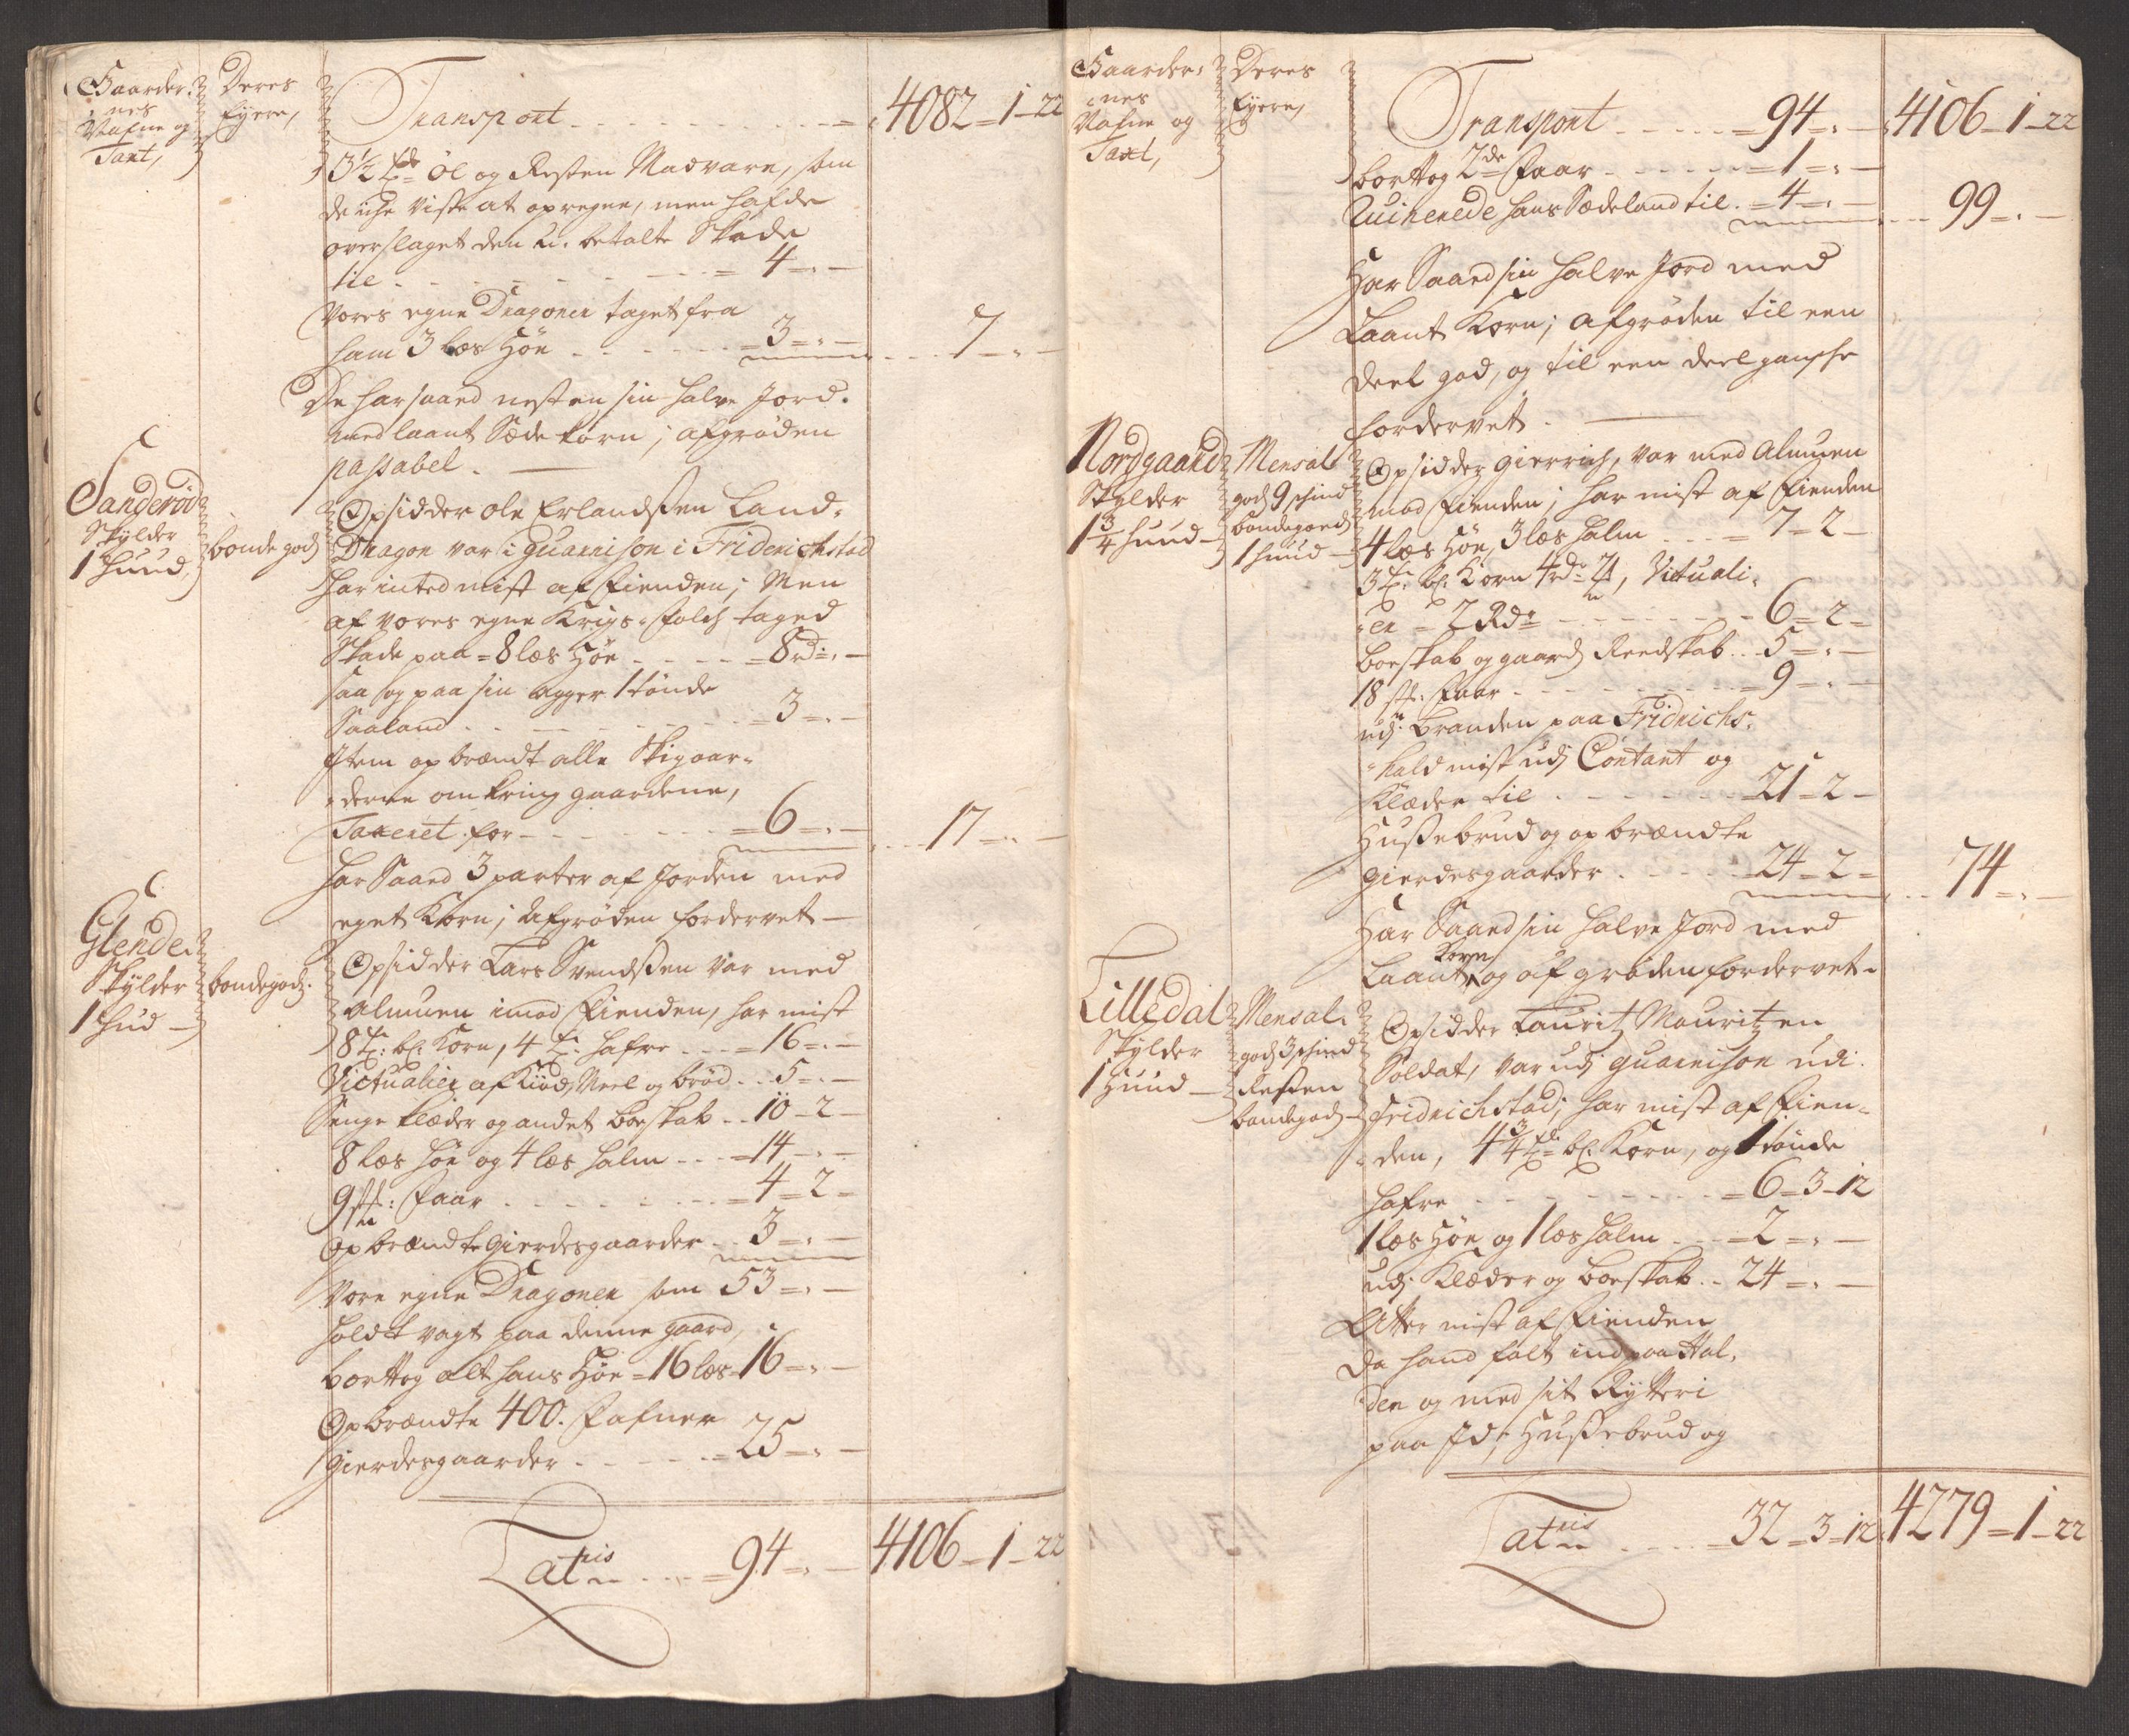 Gaarder-
nes
Nafne og
Taxt,
Deres
Eyere,
Transport - - - 4082 - 1 - 22
3½ Tdr Øl og Resten Madvare, som
de iche Viste at opregne, men hafde
overslaget den u-betalte Skade
til - - - 4 - " -
Vores egne Dragoner taget fra
ham 3 læs Høe - - - 3 - " - - - 7 - " -
De har saaed nesten sin halve Jord
med laant Sæde korn; afgrøden
passabel. —
Sanderød
Skylder
1 Huud,
bonde gods
Opsidder Ole Erlandssen Land-
Dragon var i guarnison i Friderichstad
har intet mist af Fienden; Men
af vores egne Krigs-Folch taged
Skade paa 8 læs Høe - - - 8 rdr " -
saa og paa sin agger 1 tønde
Saaland - - - 3 - " -
Item op brændt alle Skigaar-
derne omkring gaardene,
Taxeret for - - - 6 - " - - - 17 - " -
Har Saaed 3 parter af Jorden med
eget Korn; Afgrøden fordervet —
Glende
Skylder
1 Hud —
bondegods.
Opsidder Lars Svendssen Var med
almuen imod Fienden, har mist
8 Tr: bl: Korn, 4 Tr: hafre - - - 16 - " -
Victualier af Kiød, Meel og brød - - 5 - " -
Senge klæder og andet boeskab - - 10 - 2 -
8 læs høe og 4 læs halm - - - 14 - " -
9 st: Faar - - - 4 - 2 -
Opbrændte gierdesgaarder - - 3 - " -
Vore egne Dragoner som 53 - " -
holdt vagt paa denne gaard,
borttog alt hans Høe - 16 læs - 16 - " -
Opbrændte 400. Fafner
gierdesgaarder - - - 25 - " -
Lateris - - - 94 - " - 4106 - 1 - 22
Gaarder-
nes
Nafne og
Taxt,
Deres
Eyere,
Transport - - - 94 - " - 4106 - 1 - 22
borttog 2de Faar - - - 1 - " -
Ruinerede hans Sædeland til - 4 - " - - - 99 - " -
Har Saaed sin halve Jord med
Laant Korn; afgrøden til een
deel god, og til een deel gansche
fordervet. —
Nordgaard
Skylder
1¾ Huud —
Mensal
gods 9 schind
bondegods
1 huud —
Opsidder gierrich, var med Almuen
mod Fienden; har mist af Fienden
4 læs Høe, 3 læs halm - - - 7 - 2 -
3 Tr. bl: Korn 4 rdr 2 , Victuali-
er - 2 Rdr - - - 6 - 2 -
boeskab og gaards Reedskab - - 5 - " -
18 st: Faar - - - 9 - " -
udj branden paa Fridrichs-
hald mist udj Contant og
Klæder til - - - 21 - 2 -
Hussebrud og op brændte
gierdesgaarder - - - 24 - 2 - - - 74 - " -
Har Saaed sin halve Jord med
Laant Korn og afgrøden fordervet -
Lilledal
Skylder
1 Huud —
Mensal-
gods 3 schind
Resten
bondegods —
Opsidder Lauritz Mouritzen
Soldat, var udj guarnison udi
Fridrichstad; har mist af Fien-
den, 4¾ Tr bl: Korn, og 1 tønde
hafre - - - 6 - 3 - 12
1 læs Høe og 1 læs halm - - - 2 - " -
udj Klæder og boeskab - - 24 - " -
Atter mist af Fienden
da hand falt ind paa Hal-
den og med sit Rytteri
paa Id; Hussebrud og
Lateris - - - 32 - 3 - 12 4279 - 1 - 22